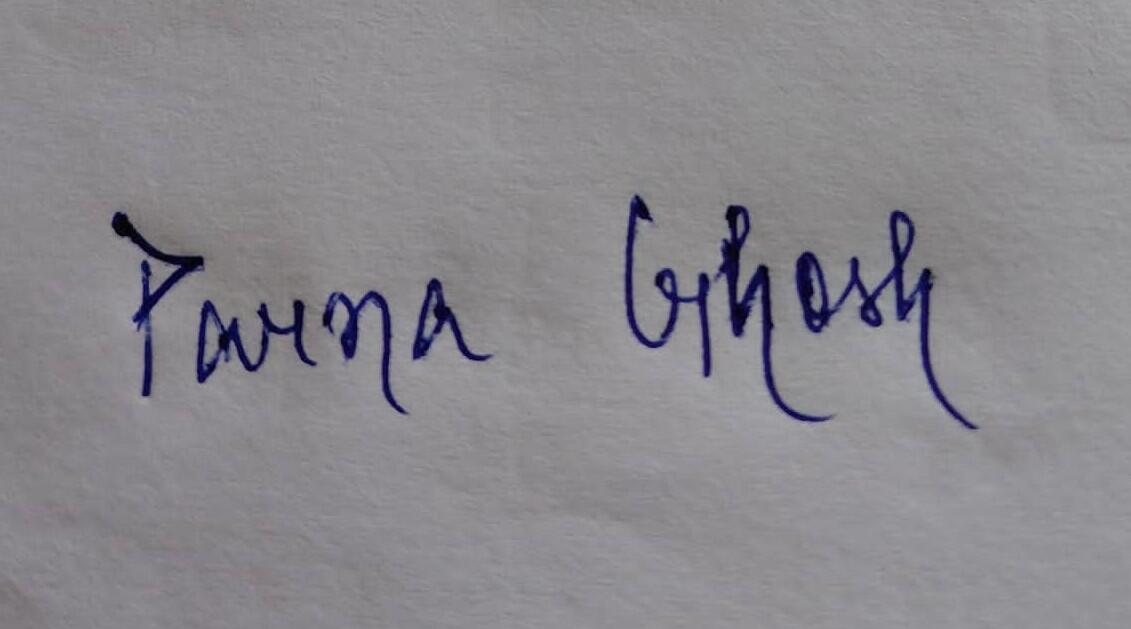 Parna Ghosh